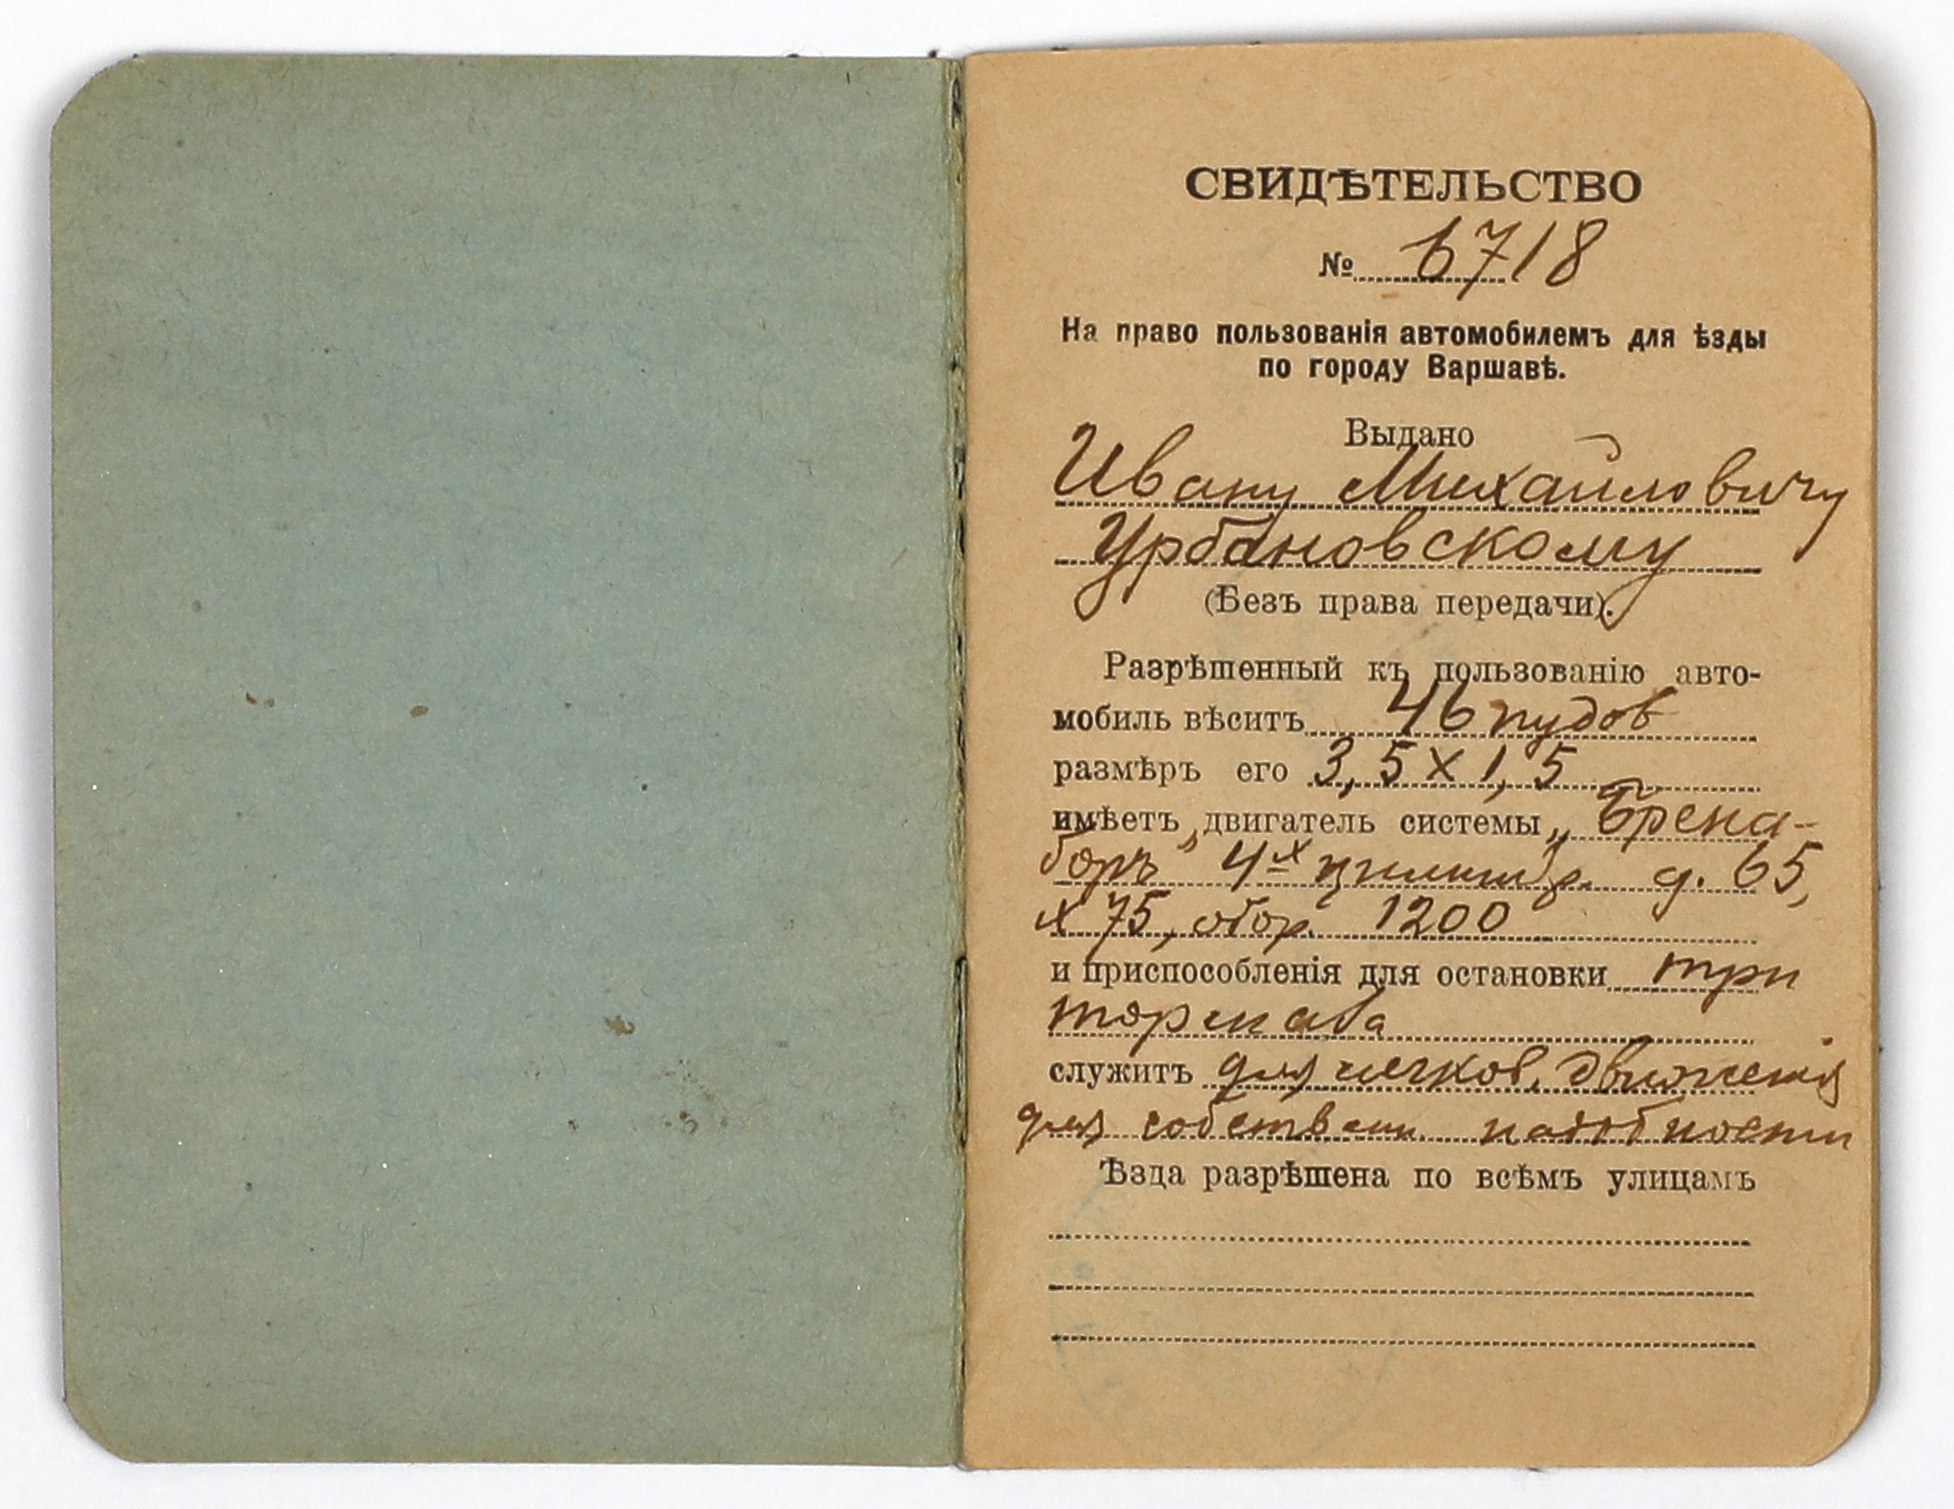 СВИДѢТЕЛЬСТВО
№ 6718
На право пользованія автомобилемъ для ѣзды
по городу Варшавѣ.
Выдано
Ивану Михайловичу
Урбановскому
(Безъ права передачи).
Разрѣшенный къ пользованію авто-
мобиль вѣситъ 46 пудов
размѣръ его 3,5 х 1,5
имѣетъ двигатель системы „Брена-
боръ" 4х цилиндр. д. 65,
х 75, обор. 1200
и приспособленія для остановки три
тормаза
служитъ для легков. движенія
для собствен. надобности
Ѣзда разрѣшена по всѣмъ улицамъ